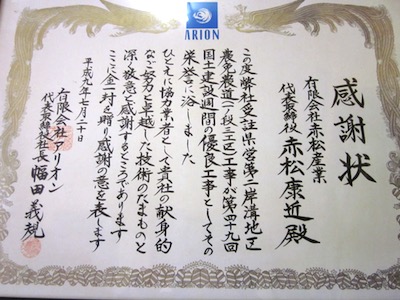 ARION
感謝状
有限会社 赤松産業
代表取締役 赤松康近殿
この度弊社受註県営第一岸溝地区
農免農道(一段三区)工事が第四十九回
国土建設週間の優良工事としてその
栄誉に浴しました
ひとえに協力業者として貴社の献身的
なご努力と卓越した技術のたまものと
深く敬意と感謝するところであります
ここに金一封を贈り感謝の意を表します
平成九年七月二十日
有限会社アリオン
代表取締役社長 幅田義規